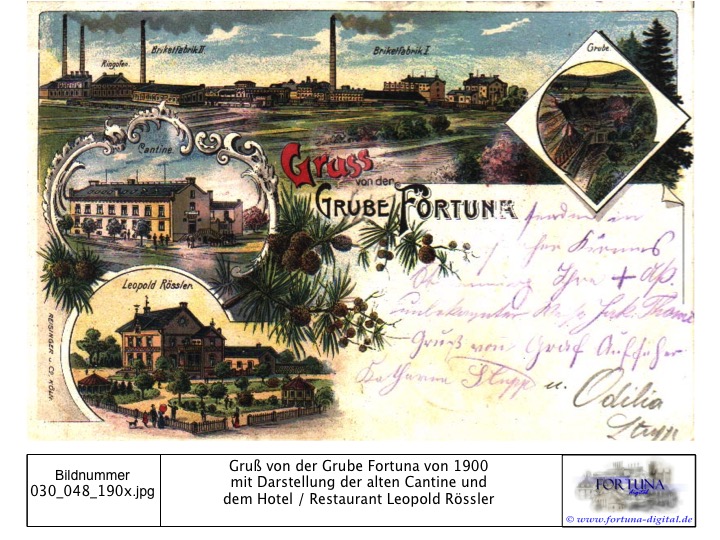 Brikettfabrik II
Ringofen.
Brikettfabrik I.
Grube.
Cantine.
Gruss
von der
GRUBE FORTUNA
Leopold Rössler.
REISINGER u. Co. KÖLN
senden in
Ihre
unbekannter
Gruß von Graf
Katharina Stupp u. Odilia
Stupp
Bildnummer
030_048_190x.jpg
Gruß von der Grube Fortuna von 1900
mit Darstellung der alten Cantine und
dem Hotel / Restaurant Leopold Rössler
FORTUNA
digital
© www.fortuna-digital.de